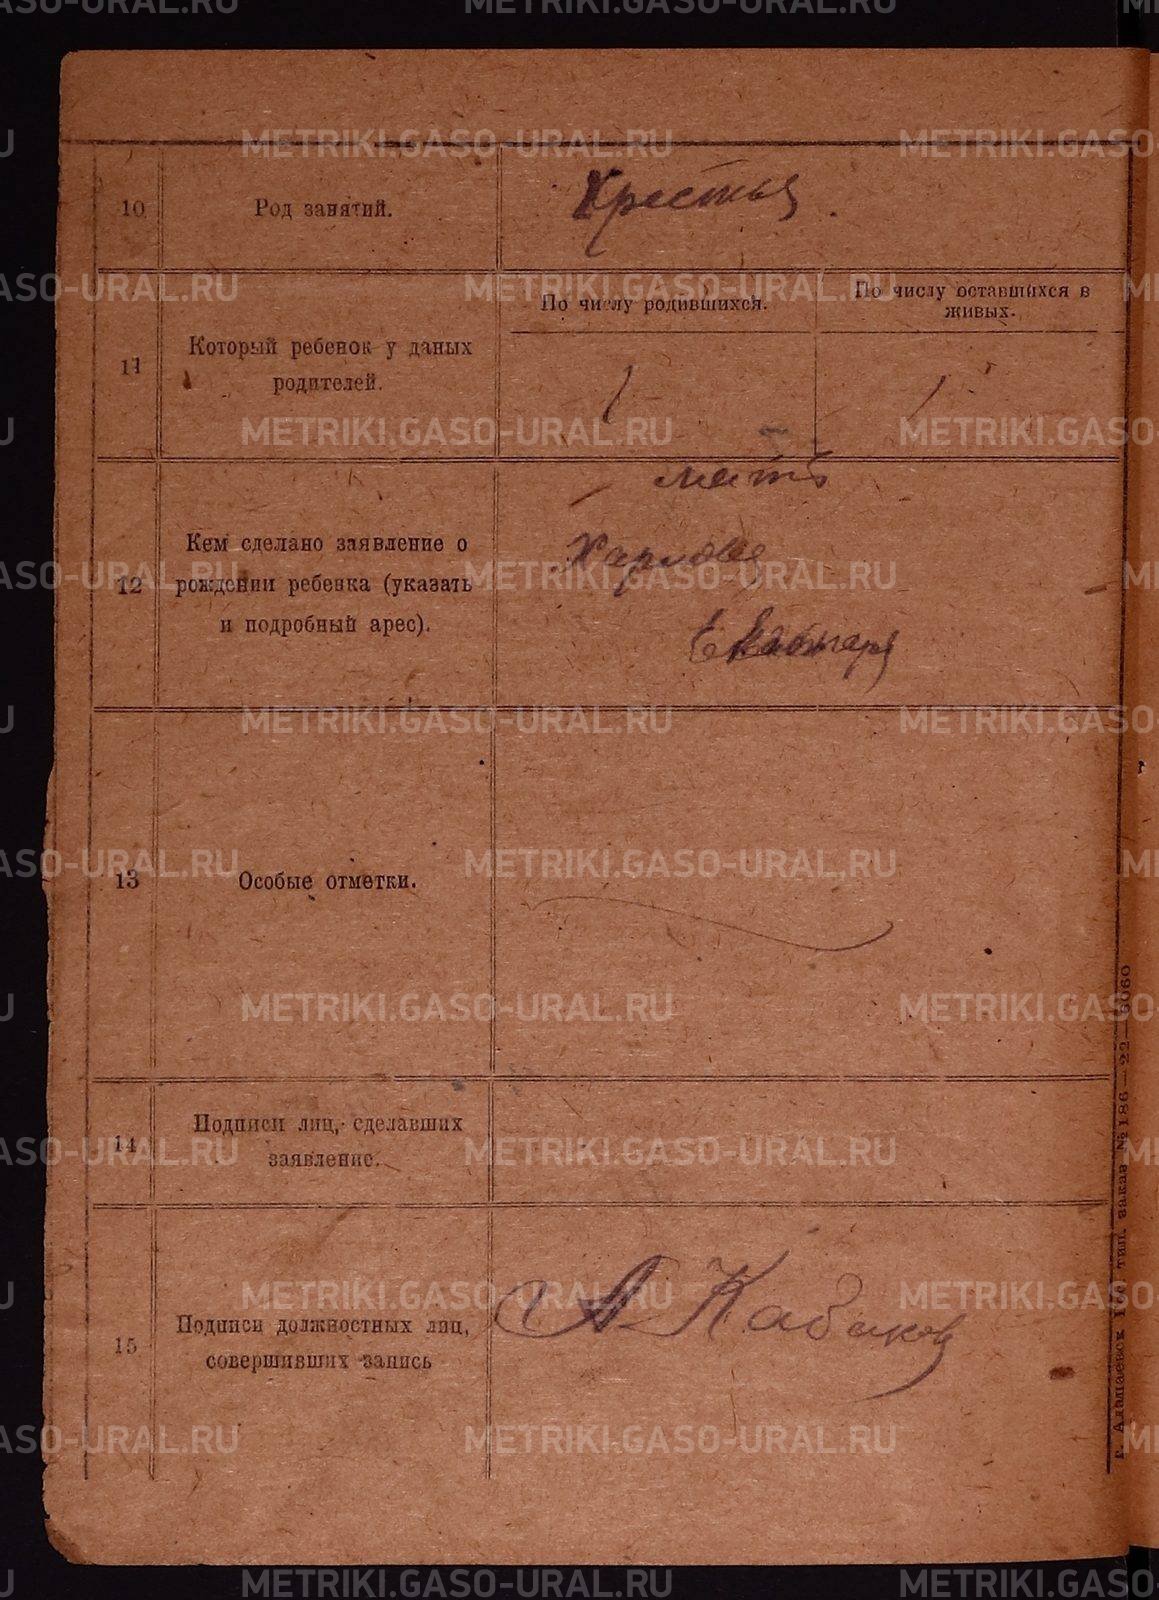 10
Род занятий.
Крестья
11
Который ребенок у даных
родителей.
По числу родившихся.
По числу оставшихся в
живых.
1
1
12
Кем сделано заявление о
рождении ребенка (указать
и подробный арес).
мать
Харлова
Екатер
13
Особые отметки.
14
Подписи лиц, сделавших
заявление.
15
Подписи должностных лиц,
совершивших запись
А Кабаков
г. Алапаевск тип. заказ № 186—22—6060
METRIKI.GASO-URAL.RU